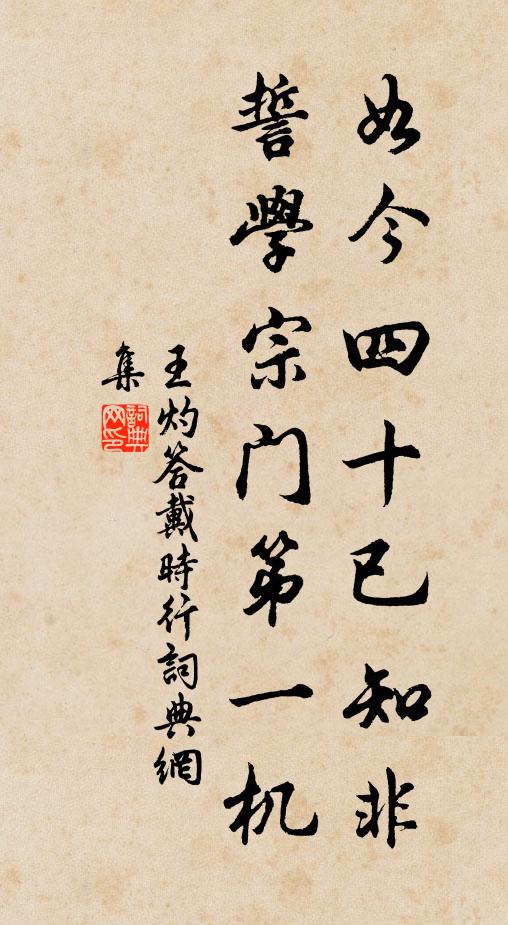 如今四十已知非
誓學宗门第一机
王灼答戴時行詞典網
集
詞典网印